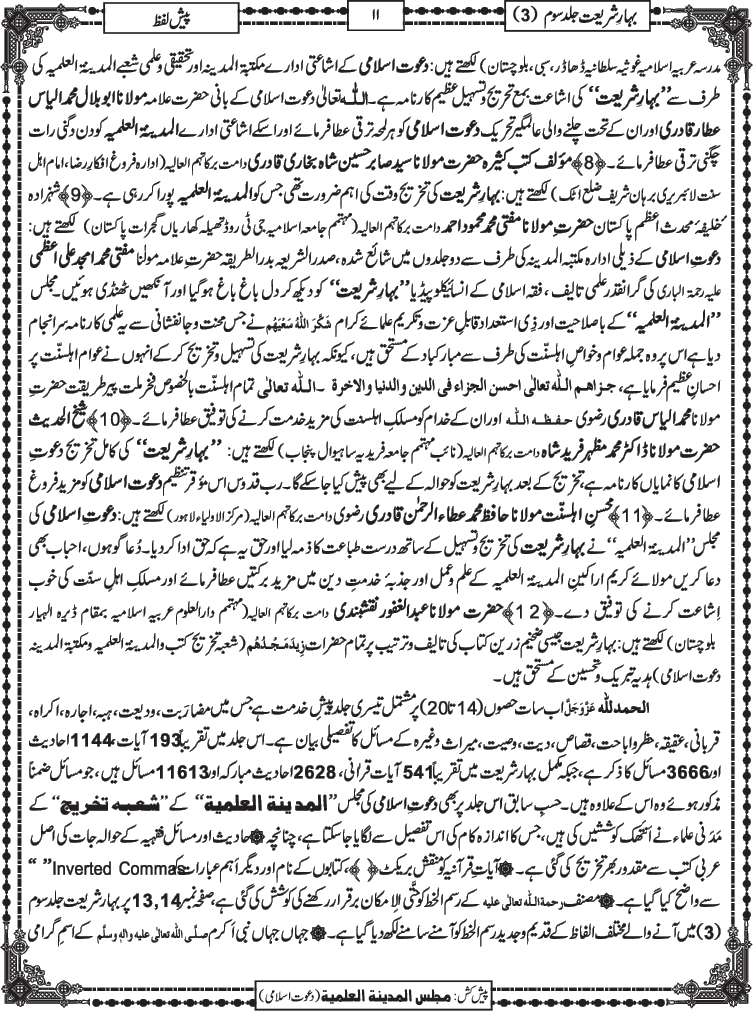 بہارِشریعت جلد سوم (3)
۱۱
پیش لفظ
مدرسہ عربیہ اسلامیہ غوثیہ سلطانیہ ڈھاڈر، سبی، بلوچستان) لکھتے ہیں: دعوت اسلامی کے اشاعتی ادارے مکتبۃ المدینہ اور تحقیقی وعلمی شعبے المدینۃ العلمیہ کی
طرف سے ’’بہارِ شریعت‘‘ کی اشاعت بمع تخریج وتسہیل عظیم کارنامہ ہے۔ اللہ تعالٰی دعوت اسلامی کے بانی حضرت علامہ مولانا ابو بلال محمد الیاس
عطار قادری اور ان کے تحت چلنے والی عالمگیر تحریک دعوت اسلامی کو ہر لمحہ ترقی عطا فرمائے اور اسکے اشاعتی ادارے المدینۃ العلمیہ کو دن دگنی رات
چگنی ترقی عطا فرمائے۔ ﴿8﴾ مؤلف کتب کثیرہ حضرت مولانا سید صابر حسین شاہ بخاری قادری دامت برکاتہم العالیہ (ادارہ فروغ افکار رضا، امام اہل
سنت لائبریری برہان شریف ضلع اٹک) لکھتے ہیں: بہارِ شریعت کی تخریج وقت کی اہم ضرورت تھی جس کو المدینۃ العلمیہ پورا کر رہی ہے۔ ﴿9﴾ شہزادہ
خلیفۂ محدث اعظم پاکستان حضرتِ مولانا مفتی محمد محمود احمد دامت برکاتہم العالیہ (مہتمم جامعہ اسلامیہ جی ٹی روڈ تھیلہ کھاریاں گجرات پاکستان) لکھتے ہیں:
دعوتِ اسلامی کے ذیلی ادارہ مکتبۃ المدینہ کی طرف سے دو جلدوں میں شائع شدہ، صدرالشریعہ بدرالطریقہ حضرت علامہ مولٰنا مفتی محمد امجد علی اعظمی
علیہ رحمۃ الباری کی گرانقدر علمی تالیف، فقہ اسلامی کے انسائیکلوپیڈیا ’’بہارِ شریعت‘‘ کو دیکھ کر دل باغ باغ ہوگیا اور آنکھیں ٹھنڈی ہوئیں۔ مجلس
’’المدینۃ العلمیہ‘‘ کے باصلاحیت اور ذِی استعداد قابلِ عزت وتکریم علمائے کرام شَکَرَ اللہُ سَعْیَہُم نے جس محنت و جانفشانی سے یہ علمی کارنامہ سرانجام
دیا ہے اس پر وہ جملہ عوام وخواص اہلسنّت کی طرف سے مبارکباد کے مستحق ہیں، کیونکہ بہارِ شریعت کی تسہیل و تخریج کرکے انہوں نے عوام اہلسنت پر
احسانِ عظیم فرمایا ہے، جزاھم اللہ تعالی احسن الجزاء فی الدین والدنیا والاخرۃ ۔ اللہ تعالٰی تمام اہلسنّت بالخصوص فخرِ ملت پیرِ طریقت حضرتِ
مولانا محمد الیاس قادری رضوی حفظہ اللہ اور ان کے خدام کو مسلکِ اہلسنت کی مزید خدمت کرنے کی توفیق عطا فرمائے۔ ﴿10﴾ شیخ الحدیث
حضرت مولانا ڈاکٹر محمد مظہر فرید شاہ دامت برکاتہم العالیہ (نائب مہتمم جامعہ فریدیہ ساہیوال پنجاب) لکھتے ہیں: ’’بہارِ شریعت‘‘ کی کامل تخریج دعوتِ
اسلامی کا نمایاں کارنامہ ہے، تخریج کے بعد بہارِ شریعت کو حوالہ کے لیے بھی پیش کیا جاسکے گا۔ رب قدوس اس مؤقر تنظیم دعوت اسلامی کو مزید فروغ
عطا فرمائے۔ ﴿11﴾ محسنِ اہلسنّت مولانا حافظ محمد عطاء الرحمٰن قادری رضوی دامت برکاتہم العالیہ (مرکز الاولیاء لاہور) لکھتے ہیں: دعوتِ اسلامی کی
مجلس ’’المدینۃ العلمیہ‘‘ نے بہارِ شریعت کی تخریج وتسہیل کے ساتھ درست طباعت کا ذمہ لیا اور حق یہ ہے کہ حق ادا کر دیا۔ دُعا گو ہوں، احباب بھی
دعا کریں مولائے کریم اراکینِ المدینۃ العلمیہ کے علم وعمل اور جذبۂ خدمتِ دین میں مزید برکتیں عطا فرمائے اور مسلکِ اہلِ سنّت کی خوب
اِشاعت کرنے کی توفیق دے۔ ﴿12﴾ حضرت مولانا عبدالغفور نقشبندی دامت برکاتہم العالیہ (مہتمم دارالعلوم عربیہ اسلامیہ بمقام ڈیرہ الہیار
بلوچستان) لکھتے ہیں: بہارِ شریعت جیسی ضخیم زریں کتاب کی تالیف و ترتیب پر تمام حضرات زِیدَ مَجْدُہُم (شعبہ تخریج کتب والمدینۃ العلمیہ ومکتبۃ المدینہ
دعوت اسلامی) ہدیہ تبریک و تحسین کے مستحق ہیں۔
الحمدللہ عَزَّوَجَلَّ اب سات حصوں (14 تا 20) پر مشتمل تیسری جلد پیشِ خدمت ہے جس میں مضاربت، ودیعت، ہبہ، اجارہ، اکراہ،
قربانی، عقیقہ، حظر واباحت، قصاص، دیت، وصیت، میراث وغیرہ کے مسائل کا تفصیلی بیان ہے۔ اس جلد میں تقریباً 193 آیات، 1144 احادیث
اور 3666 مسائل کا ذکر ہے، جبکہ مکمل بہارِ شریعت میں تقریباً 541 آیات قرآنی، 2628 احادیث مبارکہ اور 11613 مسائل ہیں، جو مسائل ضمناً
مذکور ہوئے وہ اس کے علاوہ ہیں۔ حسبِ سابق اس جلد پر بھی دعوتِ اسلامی کی مجلس ’’المدینۃ العلمیۃ‘‘ کے ’’شعبہ تخریج‘‘ کے
مَدَنی علماء نے اَنتھک کوششیں کی ہیں، جس کا اندازہ کام کی اس تفصیل سے لگایا جاسکتا ہے، چنانچہ ۞ احادیث اور مسائل فقہیہ کے حوالہ جات کی اصل
عربی کتب سے مقدور بھر تخریج کی گئی ہے۔ ۞ آیات قرآنیہ کو منقش بریکٹ ﴿ ﴾، کتابوں کے نام اور دیگر اہم عبارات کو Inverted Commas ’’ ‘‘
سے واضح کیا گیا ہے۔ ۞ مصنف رحمۃ اللہ تعالٰی علیہ کے رسم الخط کو حتَّی الاِمکان برقرار رکھنے کی کوشش کی گئی ہے، صفحہ نمبر 13,14 پر بہارِ شریعت جلد سوم
(3) میں آنے والے مختلف الفاظ کے قدیم و جدید رسم الخط کو آمنے سامنے لکھ دیا گیا ہے۔ ۞ جہاں جہاں نبی اَکرم صلَّی اللہ تعالٰی علیہ واٰلہٖ وسلَّم کے اسمِ گرامی
پیش کش: مجلس المدینۃ العلمیۃ (دعوتِ اسلامی)